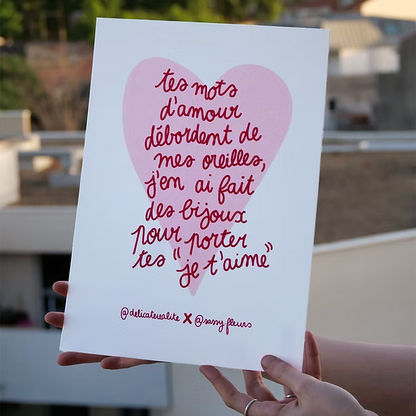 tes mots
d'amour
débordent de
mes oreilles,
j'en ai fait
des bijoux
pour porter
tes "je t'aime"
@délicatesalite X @sassy.fleurs